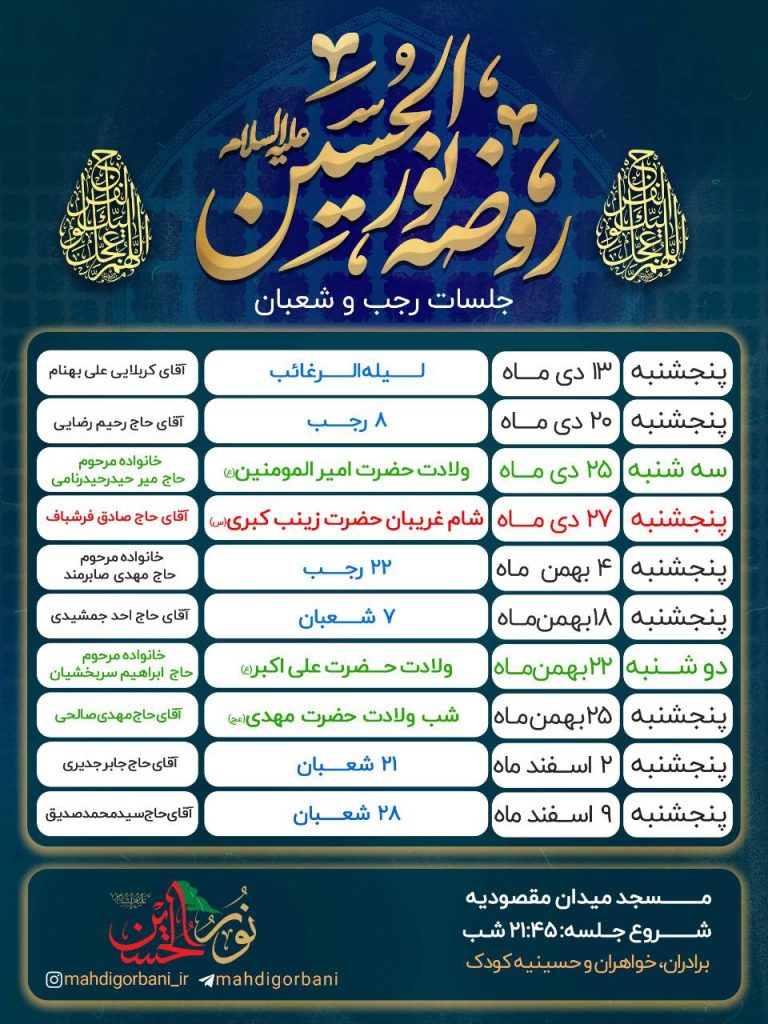 روضه نور الحسین علیه السلام
اللهم عجل لولیک الفرج
اللهم عجل لولیک الفرج
جلسات رجب و شعبان
پنجشنبه ۱۳ دی ماه لیله الرغائب آقای کربلایی علی بهنام
پنجشنبه ۲۰ دی ماه ۸ رجب آقای حاج رحیم رضایی
سه شنبه ۲۵ دی ماه ولادت حضرت امیر المومنین(ع) خانواده مرحوم
حاج میر حیدرحیدرنامی
پنجشنبه ۲۷ دی ماه شام غریبان حضرت زینب کبری(س) آقای حاج صادق فرشباف
پنجشنبه ۴ بهمن ماه ۲۲ رجب خانواده مرحوم
حاج مهدی صابرمند
پنجشنبه ۱۸بهمن‌ماه ۷ شعبان آقای حاج احد جمشیدی
دو شنبه ۲۲بهمن‌ماه ولادت حضرت علی اکبر(ع) خانواده مرحوم
حاج ابراهیم سربخشیان
پنجشنبه ۲۵بهمن‌ماه شب ولادت حضرت مهدی(عج) آقای حاج مهدی صالحی
پنجشنبه ۲ اسفند ماه ۲۱ شعبان آقای حاج جابر جدیری
پنجشنبه ۹ اسفند ماه ۲۸ شعبان آقای حاج سید محمد صدیق
مسجد میدان مقصودیه
شروع جلسه: ۲۱:۴۵ شب
برادران، خواهران و حسینیه کودک
نور الحسین علیه السلام
mahdigorbani_ir mahdigorbani